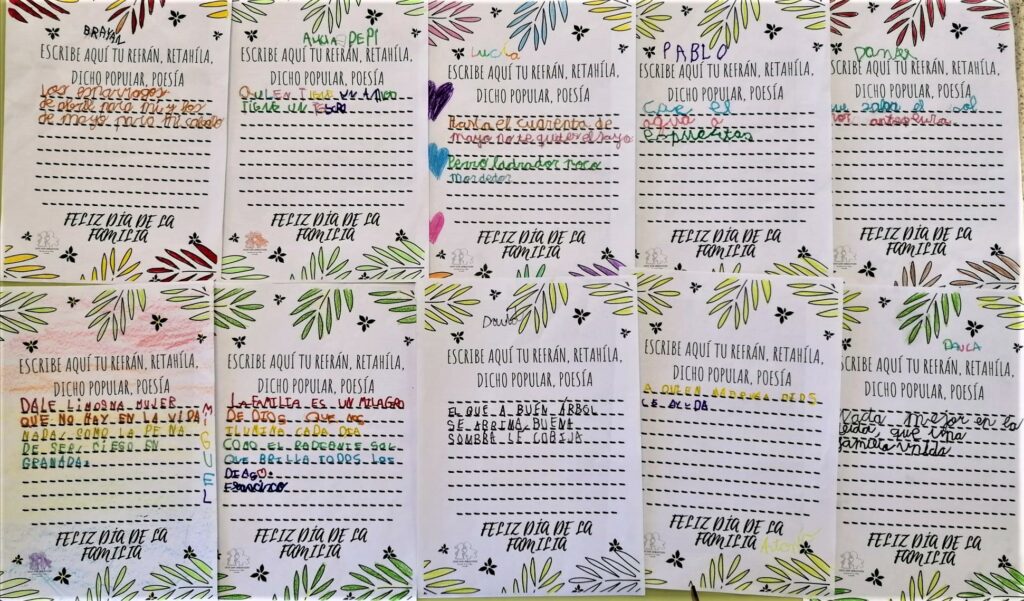 BRAYAN
ESCRIBE AQUÍ TU REFRÁN, RETAHÍLA,
DICHO POPULAR, POESÍA
los esparragos
de abril para mi y los
de mayo para mi caballo
FELIZ DÍA DE LA
FAMILIA
PEPI
ESCRIBE AQUÍ TU REFRÁN, RETAHÍLA,
DICHO POPULAR, POESÍA
QUIEN TIENE UN AMIGO
TIENE UN TESORO
FELIZ DÍA DE LA
FAMILIA
Lucía
ESCRIBE AQUÍ TU REFRÁN, RETAHÍLA,
DICHO POPULAR, POESÍA
Hasta el cuarenta de
mayo no te quites el sayo
Perro ladrador poco
mordedor
FELIZ DÍA DE LA
FAMILIA
PABLO
ESCRIBE AQUÍ TU REFRÁN, RETAHÍLA,
DICHO POPULAR, POESÍA
Cae el
agua a
espuertas
FELIZ DÍA DE LA
FAMILIA
ESCRIBE AQUÍ TU REFRÁN, RETAHÍLA,
DICHO POPULAR, POESÍA
el sol
por antequera
FELIZ DÍA DE LA
FAMILIA
ESCRIBE AQUÍ TU REFRÁN, RETAHÍLA,
DICHO POPULAR, POESÍA
DALE LIMOSNA MUJER
QUE NO HAY EN LA VIDA
NADA, COMO LA PENA
DE SER, CIEGO EN
GRANADA.
MIGUEL
FELIZ DÍA DE LA
FAMILIA
ESCRIBE AQUÍ TU REFRÁN, RETAHÍLA,
DICHO POPULAR, POESÍA
LA FAMILIA ES UN MILAGRO
DE DIOS QUE NOS
ILUMINA CADA DIA
COMO EL RADEANTE SOL
QUE BRILLA TODOS LOS
DIAS.
Francisco
FELIZ DÍA DE LA
FAMILIA
David
ESCRIBE AQUÍ TU REFRÁN, RETAHÍLA,
DICHO POPULAR, POESÍA
EL QUE A BUEN ÁRBOL
SE ARRIMA, BUENA
SOMBRA LE COBIJA
FELIZ DÍA DE LA
FAMILIA
ESCRIBE AQUÍ TU REFRÁN, RETAHÍLA,
DICHO POPULAR, POESÍA
A QUIEN MADRUGA DIOS
LE AYUDA
FELIZ DÍA DE LA
FAMILIA
Antonio
ESCRIBE AQUÍ TU REFRÁN, RETAHÍLA,
DICHO POPULAR, POESÍA
Nada mejor en la
vida, que una
familia unida
FELIZ DÍA DE LA
FAMILIA